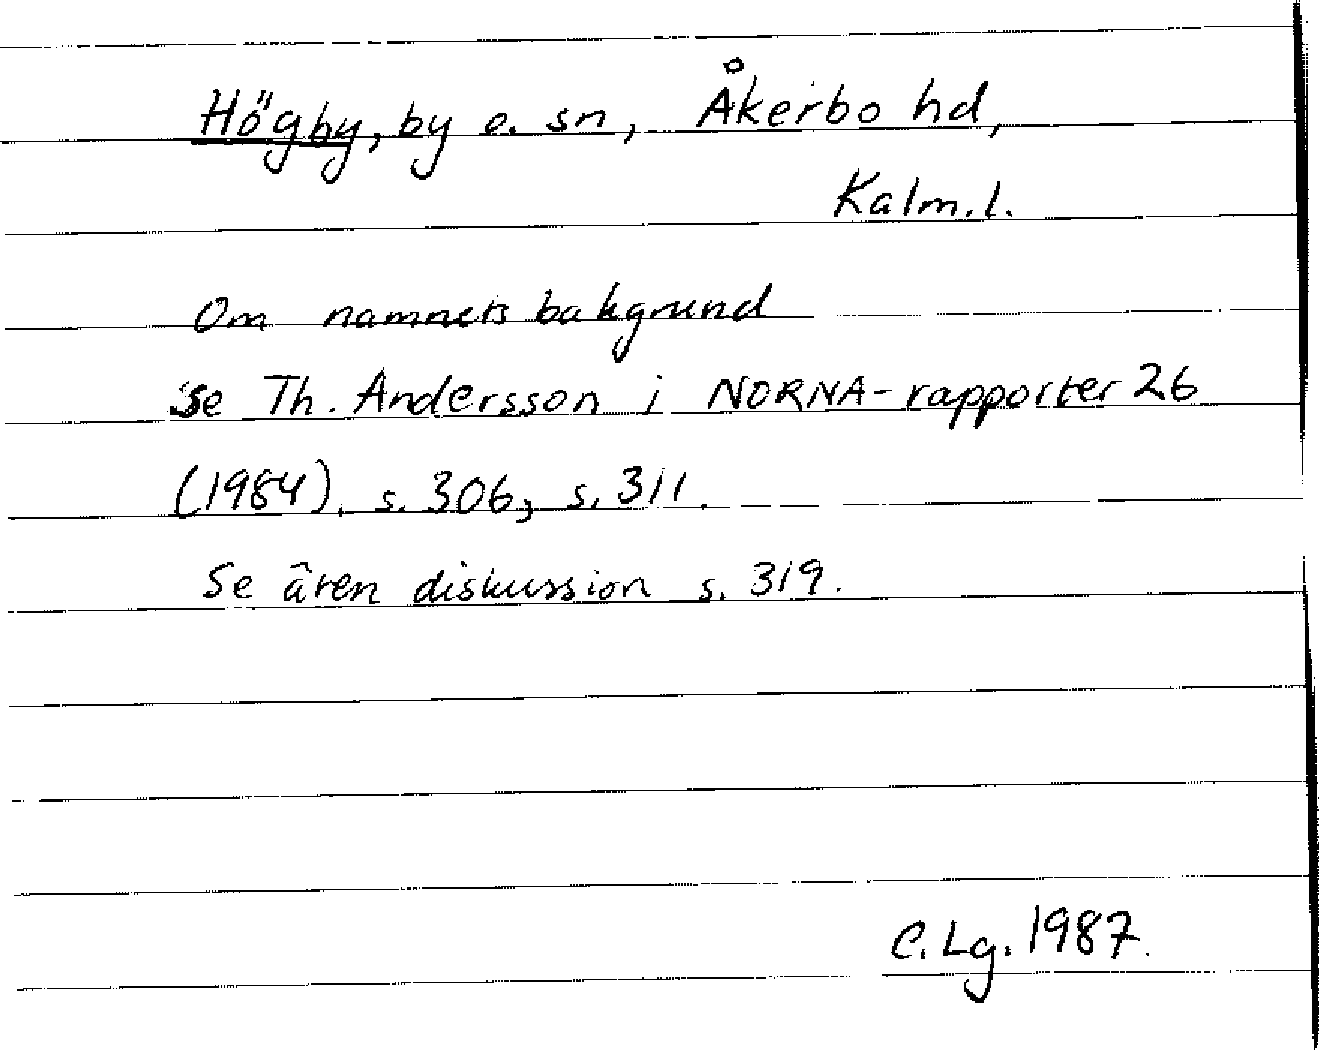 Högby, by o. sn, Åkerbo hd,
Kalm.l.
Om namnets bakgrund
se Th. Andersson i NORNA-rapporter 26
(1984), s. 306, s. 311.
Se även diskussion s. 319.
C. Lg. 1987.